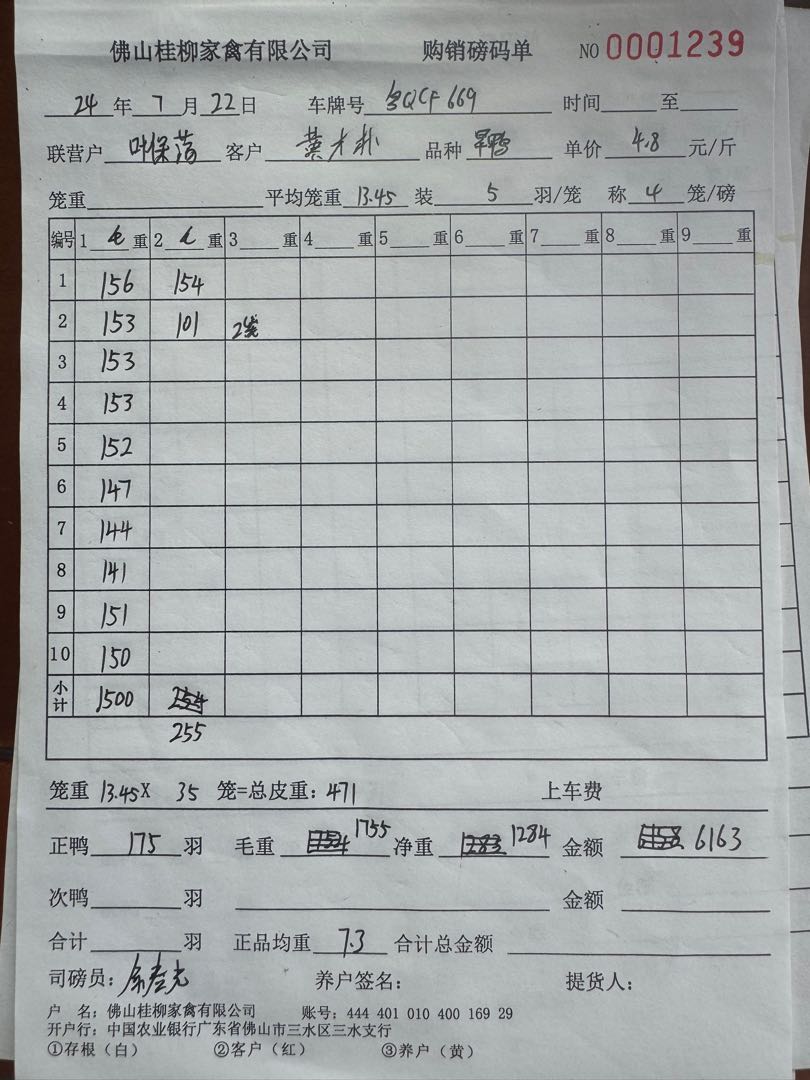 佛山桂柳家禽有限公司 购销磅码单 NO 0001239
24 年 7 月 22 日 车牌号 QCF 669 时间 至
联营户 叶保荡 客户 黄才朴 品种 旱鸭 单价 4.8 元/斤
笼重 平均笼重 13.45 装 5 羽/笼 称 4 笼/磅
编号 1 毛 重 2 重 3 重 4 重 5 重 6 重 7 重 8 重 9 重
1 156 154
2 153 101 2笼
3 153
4 153
5 152
6 147
7 144
8 141
9 151
10 150
小计 1500 254
255
笼重 13.45X 35 笼=总皮重: 471 上车费
正鸭 175 羽 毛重 1755 净重 1283 1284 金额 6163
次鸭 羽 金额
合计 羽 正品均重 7.3 合计总金额
司磅员: 养户签名: 提货人:
户 名: 佛山桂柳家禽有限公司 账号: 444 401 010 400 169 29
开户行: 中国农业银行广东省佛山市三水区三水支行
①存根（白） ②客户（红） ③养户（黄）